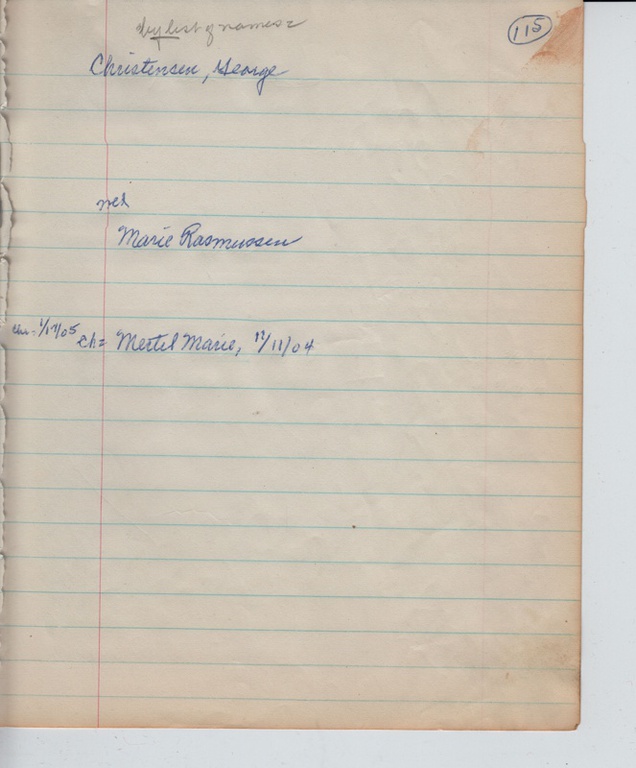 by list of names
115
Christensen, George
Marie Rasmussen
chr. 1/17/05 Ch= Mertel Marie, 12/11/04